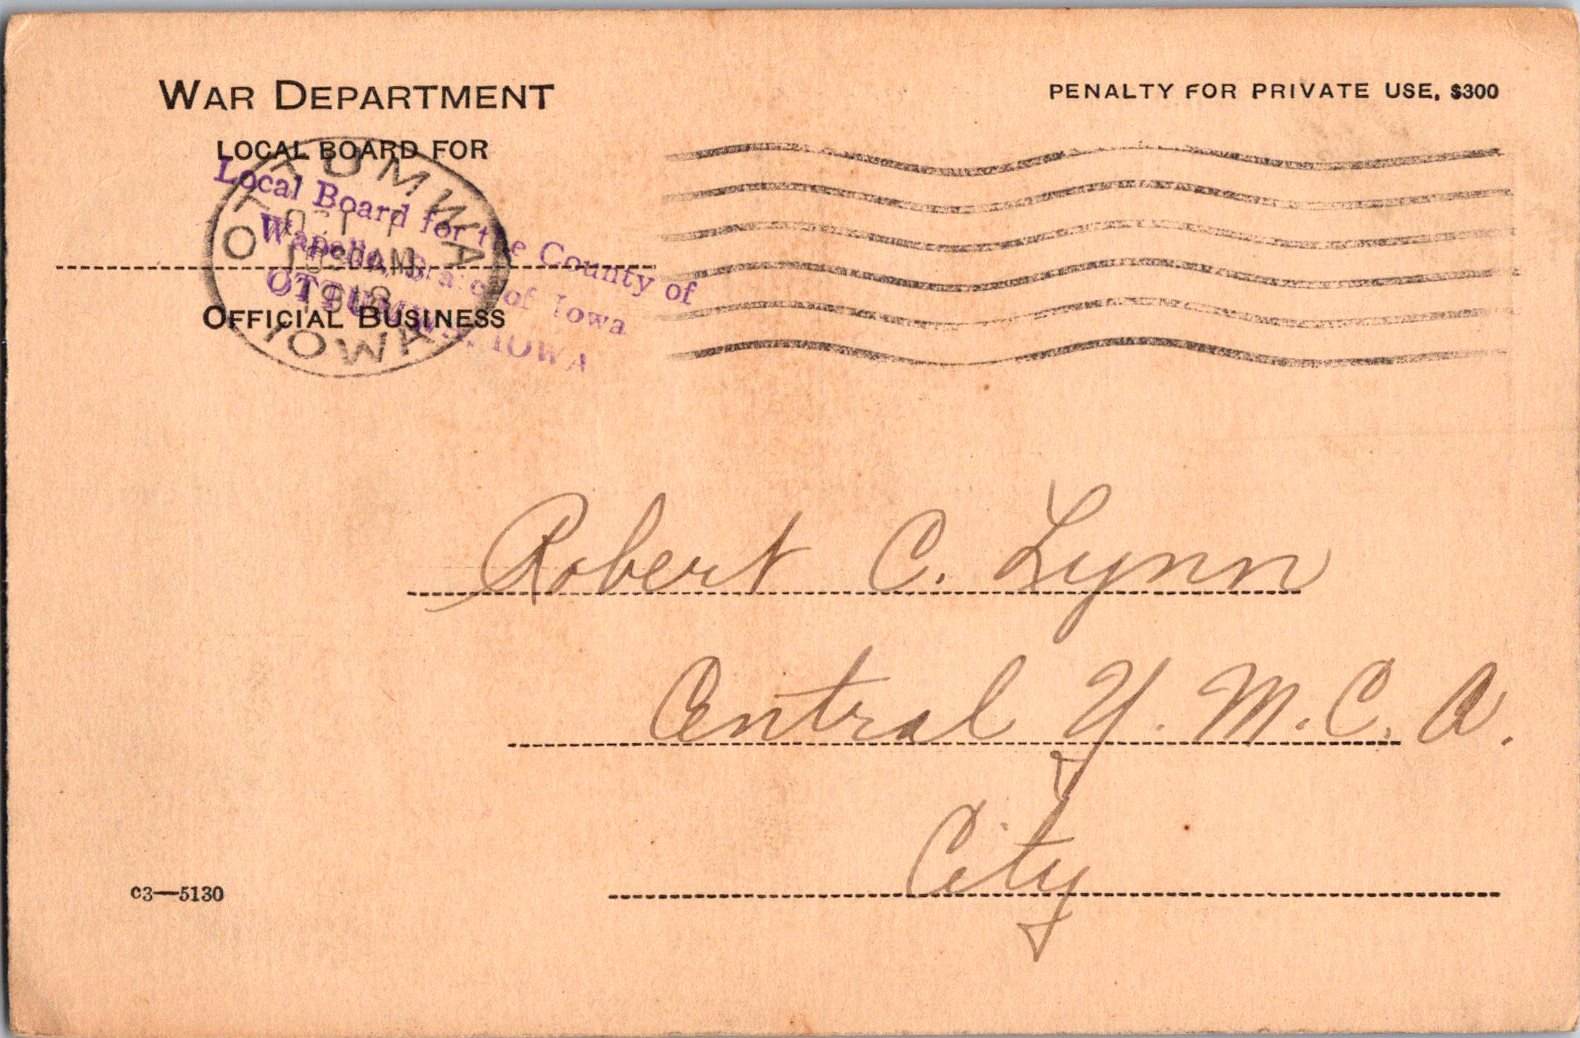 WAR DEPARTMENT
PENALTY FOR PRIVATE USE, $300
LOCAL BOARD FOR
Local Board for the County of
Wapello, State of Iowa
OTTUMWA, IOWA
OTTUMWA
OCT
AM
1918
IOWA
OFFICIAL BUSINESS
Robert C. Lynn
Central Y. M. C. A.
City
C3—5130